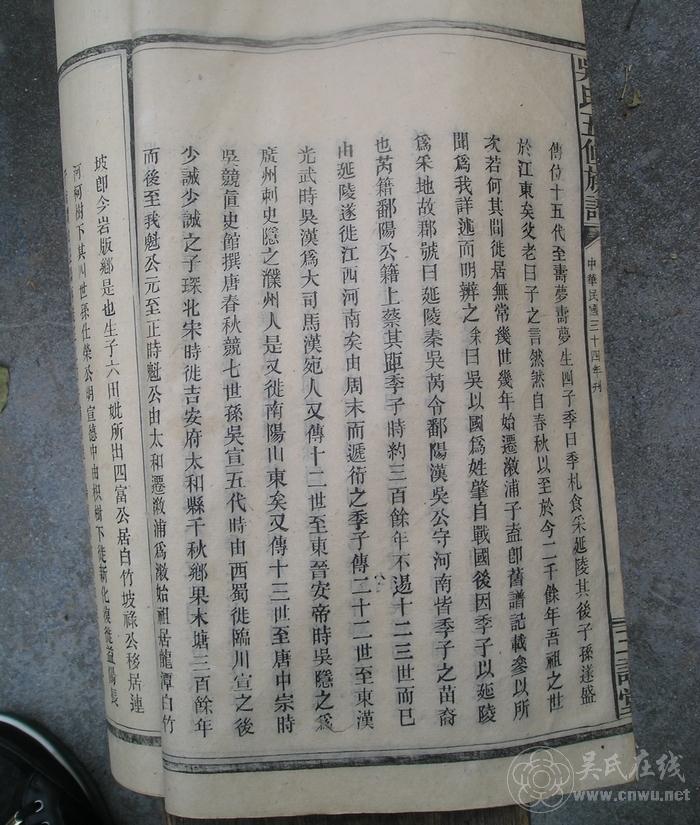 吳氏五修族譜
中華民國三十四年刊
三讓堂
傳位十五代至壽夢壽夢生四子季曰季札食采延陵其後子孫遂盛
於江東矣父老曰子之言然然自春秋以至於今二千餘年吾祖之世
次若何其間徙居無常幾世幾年始遷漵浦子盍卽舊譜記載參以所
聞爲我詳述而明辨之余曰吳以國爲姓肇自戰國後因季子以延陵
爲采地故郡號曰延陵秦吳芮令鄱陽漢吳公守河南皆季子之苗裔
也芮籍鄱陽公籍上蔡其距季子時約三百餘年不過十二三世而已
由延陵遂徙江西河南矣由周末而遞衍之季子傳二十二世至東漢
光武時吳漢爲大司馬漢宛人又傳十二世至東晉安帝時吳隱之爲
廣州刺史隱之濮州人是又徙南陽山東矣又傳十三世至唐中宗時
吳競直史館撰唐春秋競七世孫吳宣五代時由西蜀徙臨川宣之後
少誠少誠之子琛北宋時徙吉安府太和縣千秋鄉果木塘三百餘年
而後至我魁公元至正時魁公由太和遷漵浦爲漵始祖居龍潭白竹
坡卽今岩版鄉是也生子六田妣所出四富公居白竹坡祿公移居連
河柯樹下其四世孫仕榮公明宣德中由枳樹下徙新化復徙益陽長
吴氏在线
www.cnwu.net